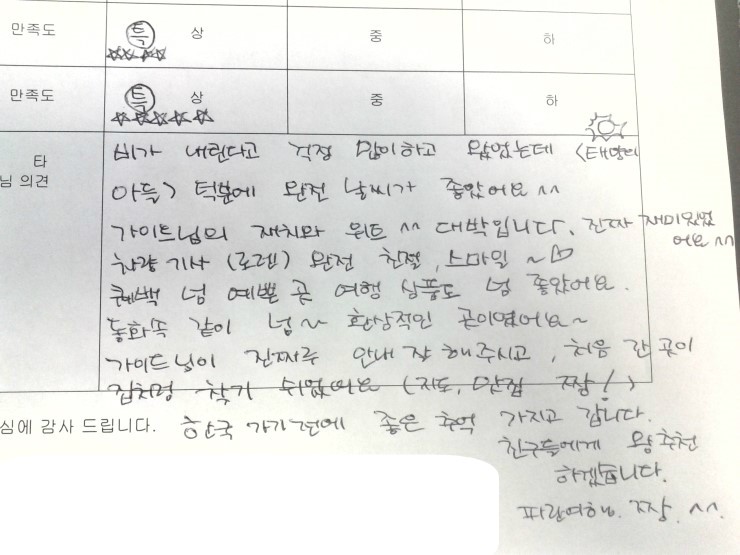 만족도 특 상 중 하
만족도 특 상 중 하
타
님 의견
비가 내린다고 걱정 많이하고 왔었는데 <태양의
아들> 덕분에 완전 날씨가 좋았어요 ^^
가이드님의 재치와 위트 ^^ 대박입니다. 진짜 재미있었
어요 ^^
차량 기사 (로렌) 완전 친절, 스마일 ~
퀘백 넘 예쁜 곳 여행 상품도 넘 좋았어요.
동화속 같이 넘~ 환상적인 곳이였어요~
가이드님이 진짜루 안내 잘 해주시고, 처음 간 곳이
집처럼 찾기 쉬웠어요 (지도, 맛집 짱!)
심에 감사 드립니다. 한국 가기전에 좋은 추억 가지고 갑니다.
친구들에게 왕추천
하겠습니다.
파랑여행. 짱. ^^.